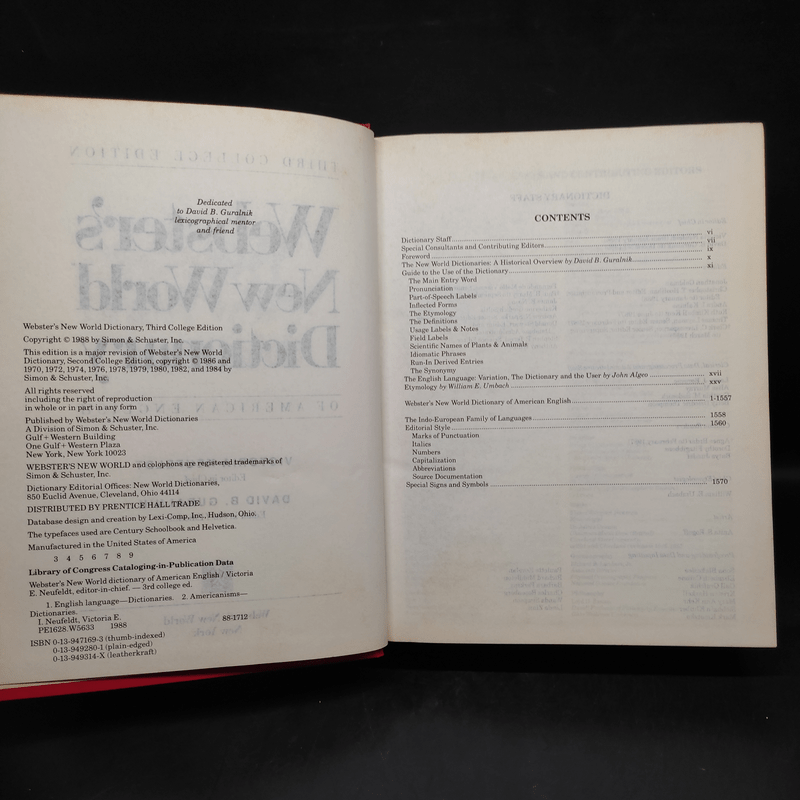 Dedicated
to David B. Guralnik
lexicographical mentor
and friend
Webster's New World Dictionary, Third College Edition
Copyright © 1988 by Simon & Schuster, Inc.
This edition is a major revision of Webster's New World
Dictionary, Second College Edition, copyright © 1986 and
1970, 1972, 1974, 1976, 1978, 1979, 1980, 1982, and 1984 by
Simon & Schuster, Inc.
All rights reserved
including the right of reproduction
in whole or in part in any form
Published by Webster's New World Dictionaries
A Division of Simon & Schuster, Inc.
Gulf+Western Building
One Gulf+Western Plaza
New York, New York 10023
WEBSTER'S NEW WORLD and colophons are registered trademarks of
Simon & Schuster, Inc.
Dictionary Editorial Offices: New World Dictionaries,
850 Euclid Avenue, Cleveland, Ohio 44114
DISTRIBUTED BY PRENTICE HALL TRADE
Database design and creation by Lexi-Comp, Inc., Hudson, Ohio.
The typefaces used are Century Schoolbook and Helvetica.
Manufactured in the United States of America
3 4 5 6 7 8 9
Library of Congress Cataloging-in-Publication Data
Webster's New World dictionary of American English / Victoria
E. Neufeldt, editor-in-chief. — 3rd college ed.
1. English language—Dictionaries. 2. Americanisms—
Dictionaries.
I. Neufeldt, Victoria E.
PE1628.W5633 1988 88-1712
ISBN 0-13-947169-3 (thumb-indexed)
0-13-949280-1 (plain-edged)
0-13-949314-X (leatherkraft)
CONTENTS
Dictionary Staff vi
Special Consultants and Contributing Editors vii
Foreword ix
The New World Dictionaries: A Historical Overview by David B. Guralnik x
Guide to the Use of the Dictionary xi
The Main Entry Word
Pronunciation
Part-of-Speech Labels
Inflected Forms
The Etymology
The Definitions
Usage Labels & Notes
Field Labels
Scientific Names of Plants & Animals
Idiomatic Phrases
Run-In Derived Entries
The Synonymy
The English Language: Variation, The Dictionary and the User by John Algeo xvii
Etymology by William E. Umbach xxv
Webster's New World Dictionary of American English 1-1557
The Indo-European Family of Languages 1558
Editorial Style 1560
Marks of Punctuation
Italics
Numbers
Capitalization
Abbreviations
Source Documentation
Special Signs and Symbols 1570